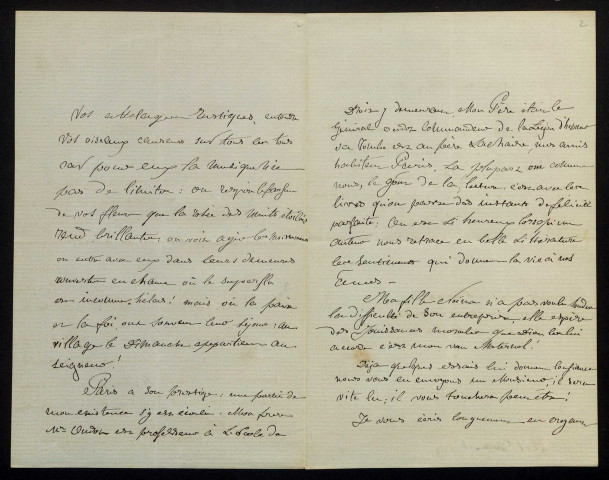 Vos Mélanges Rustiques, entendre
vos oiseaux chanteurs sur tous les tons
car pour eux la musique n'a
pas de limites : on respire le parfum
de vos fleurs que la rosée des nuits étoilées
rend brillantes, on voit agir les moissonneurs
on entre avec eux dans leurs demeures
où le superflu
est inconnu, hélas ! mais où la paix
et la foi ont souvent leur séjour : au
village le Dimanche appartient au
Seigneur !
Paris a son prestige : une partie de
mon existence s'y est écoulée : Mon frère
Mr Oudot est professeur à l'école de
Droit y demeurant, Mon Père était le
Général Oudot Commandeur de la Légion d'honneur
sa tombe est au père Lachaise, mes amis
habitent Paris. La plupart ont comme
nous, le goût de la lecture, c'est avec les
livres qu'on passe des instants de félicité
parfaite ; l'on est si heureux lorsqu'un
auteur nous retrace en belle Littérature
les sentiments qui donnent la vie à nos
Ma fille n'a pas voulu
les difficultés de son entreprise, elle espère
des jouissances morales que Dieu les lui
accorde c'est mon vœu Maternel !
Déjà quelques essais lui donnent confiance
nous vous en envoyons un Monsieur, il sera
vite lu ; il vous touchera peut-être !
Je vous écris longuement, en